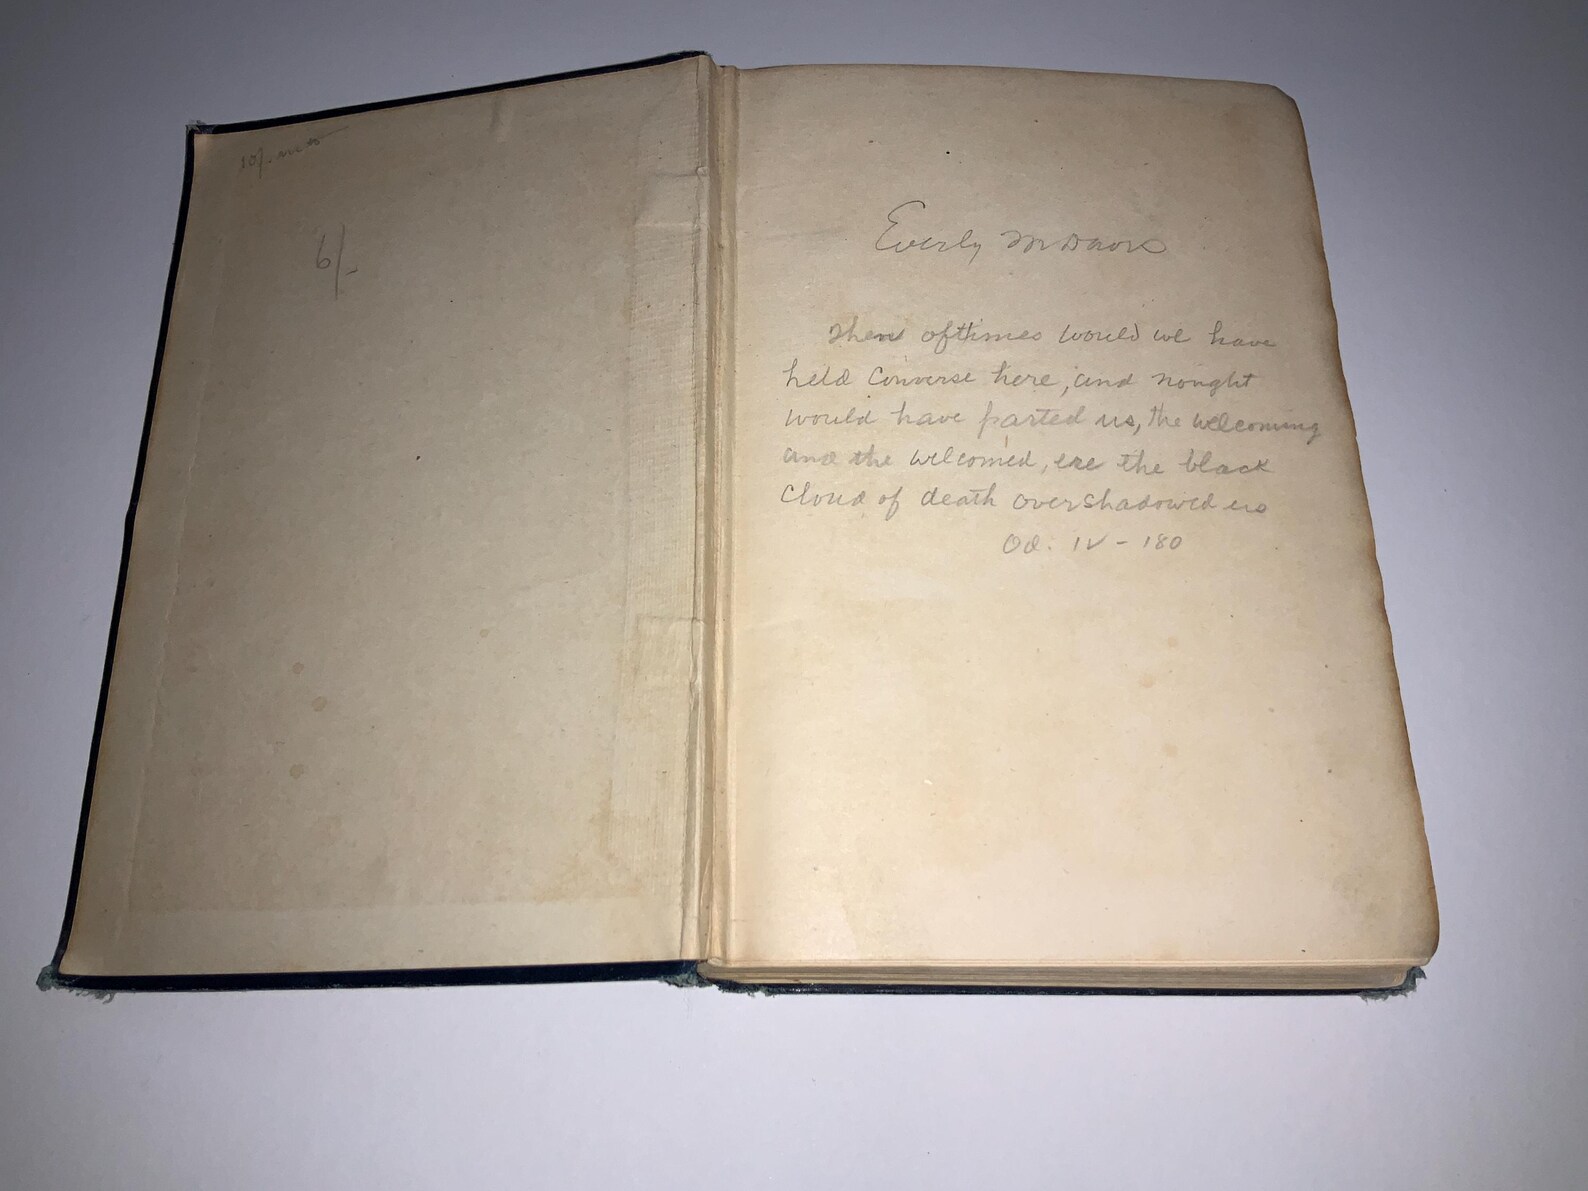 10/.
6/-
Everly M Davis
Then ofttimes would we have
held converse here, and nought
would have parted us, the welcoming
and the welcomed, ere the black
cloud of death overshadowed us
Od. IV - 180